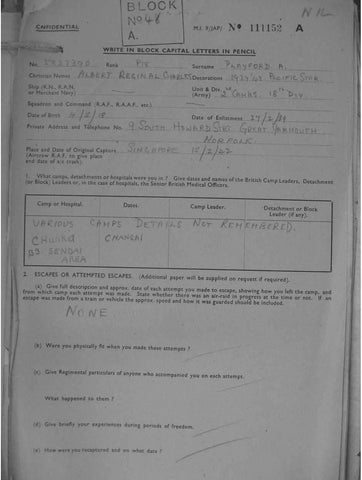 BLOCK
No 48
A.
CONFIDENTIAL
M.I. 9/JAP/ No 111152 A
WRITE IN BLOCK CAPITAL LETTERS IN PENCIL
No. Rank PTE Surname PLAYFORD A.
Christian Names ALBERT REGINAL CHARLES Decorations PACIFIC STAR
Ship (R.N., R.A.N. or Merchant Navy) Unit & Div. (Army) 2nd CAMBS. 18th DIV.
Squadron and Command (R.A.F., R.A.A.F., etc.)
Date of Birth Date of Enlistment
Private Address and Telephone No. 9 SOUTH HOWARD STR. GREAT YARMOUTH
NORFOLK
Place and Date of Original Capture SINGAPORE 15/2/42
(Aircrew R.A.F. to give place
and date of a/c crash)
1. What camps, detachments or hospitals were you in? Give dates and names of the British Camp Leaders, Detachment
(or Block) Leaders or, in the case of hospitals, the Senior British Medical Officers.
Camp or Hospital. Dates. Camp Leader. Detachment or Block Leader (if any).
VARIOUS CAMPS DETAILS NOT REMEMBERED.
CHANGAI
SENDAI
AREA
2. ESCAPES OR ATTEMPTED ESCAPES. (Additional paper will be supplied on request if required).
(a) Give full description and approx. date of each attempt you made to escape, showing how you left the camp, and
from which camp each attempt was made. State whether there was an air-raid in progress at the time or not. If an
escape was made from a train or vehicle the approx. speed and how it was guarded should be included.
NONE
(b) Were you physically fit when you made these attempts?
(c) Give Regimental particulars of anyone who accompanied you on each attempt.
What happened to them?
(d) Give briefly your experiences during periods of freedom.
(e) How were you recaptured and on what date?